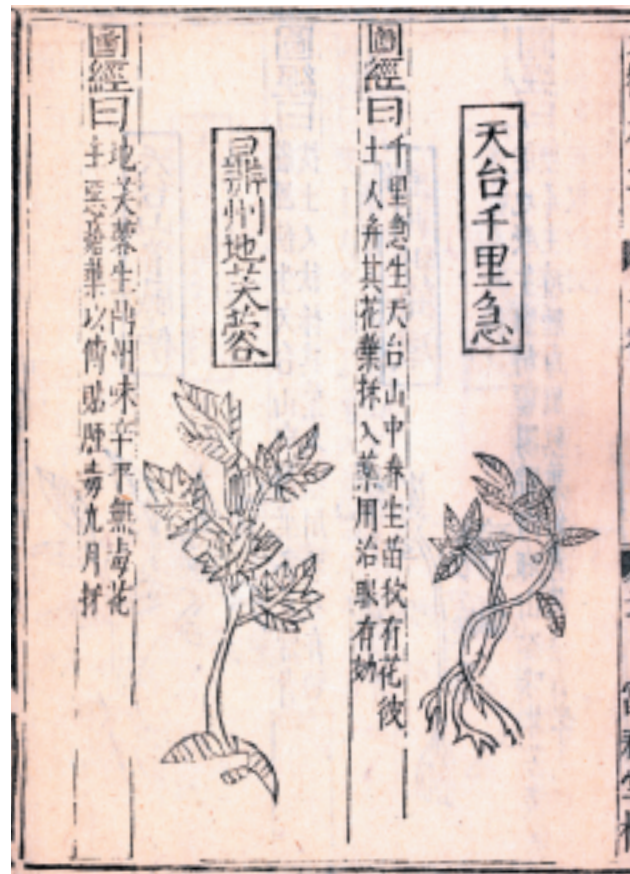 天台千里急
圖經曰
千里急生天台山中春生苗秋有花彼
土人并其花葉採入藥用治眼有効
鼎州地芙蓉
圖經曰
地芙蓉生鼎州味辛平無毒花
主惡瘡葉以傅貼腫毒九月採